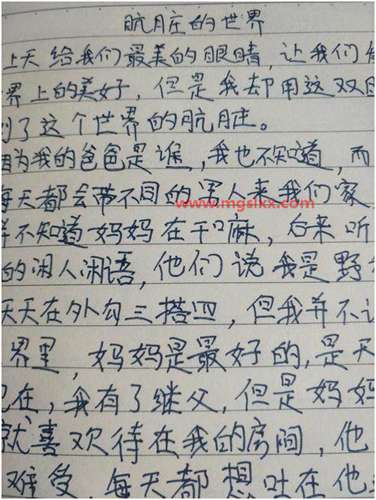 肮脏的世界
上天给我们最美的眼睛,让我们
界上的美好,但是我却用这双
到了这个世界的肮脏。
因为我的爸爸是谁,我也不知道,而
每天都会带不同的男人来我们家
并不知道妈妈在干嘛,后来听
www.mgslkx.com
的闲人闲语,他们说我是野
天天在外勾三搭四,但我并不
界里,妈妈是最好的,是天
现在,我有了继父,但是妈妈
就喜欢待在我的房间,他
难受,每天都想吐在他